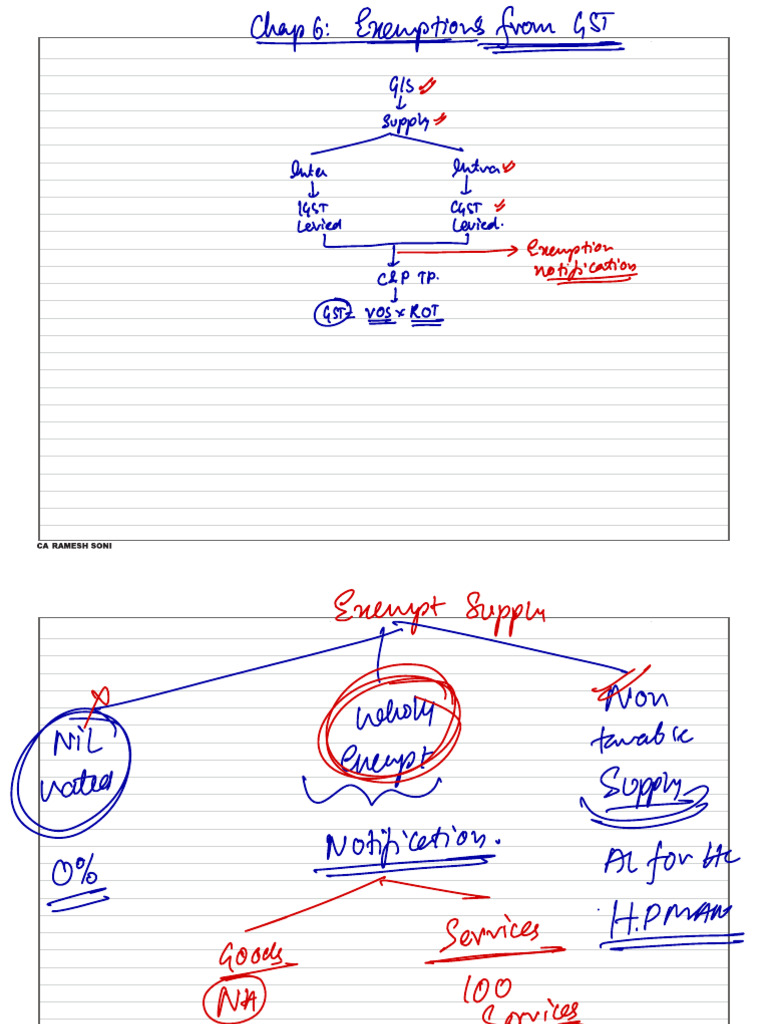 Chap 6: Exemptions from GST
G/S
Supply
Inter Intra
IGST CGST
Levied Levied.
Exemption
notification
C&P TP.
GST = VOS x ROT
CA RAMESH SONI
Exempt Supply
Nil
rated
wholly
Exempt
Non
taxable
Supply
Notification.
0%
AL for HC
H.PMAN
Goods
NA
Services
100
Services